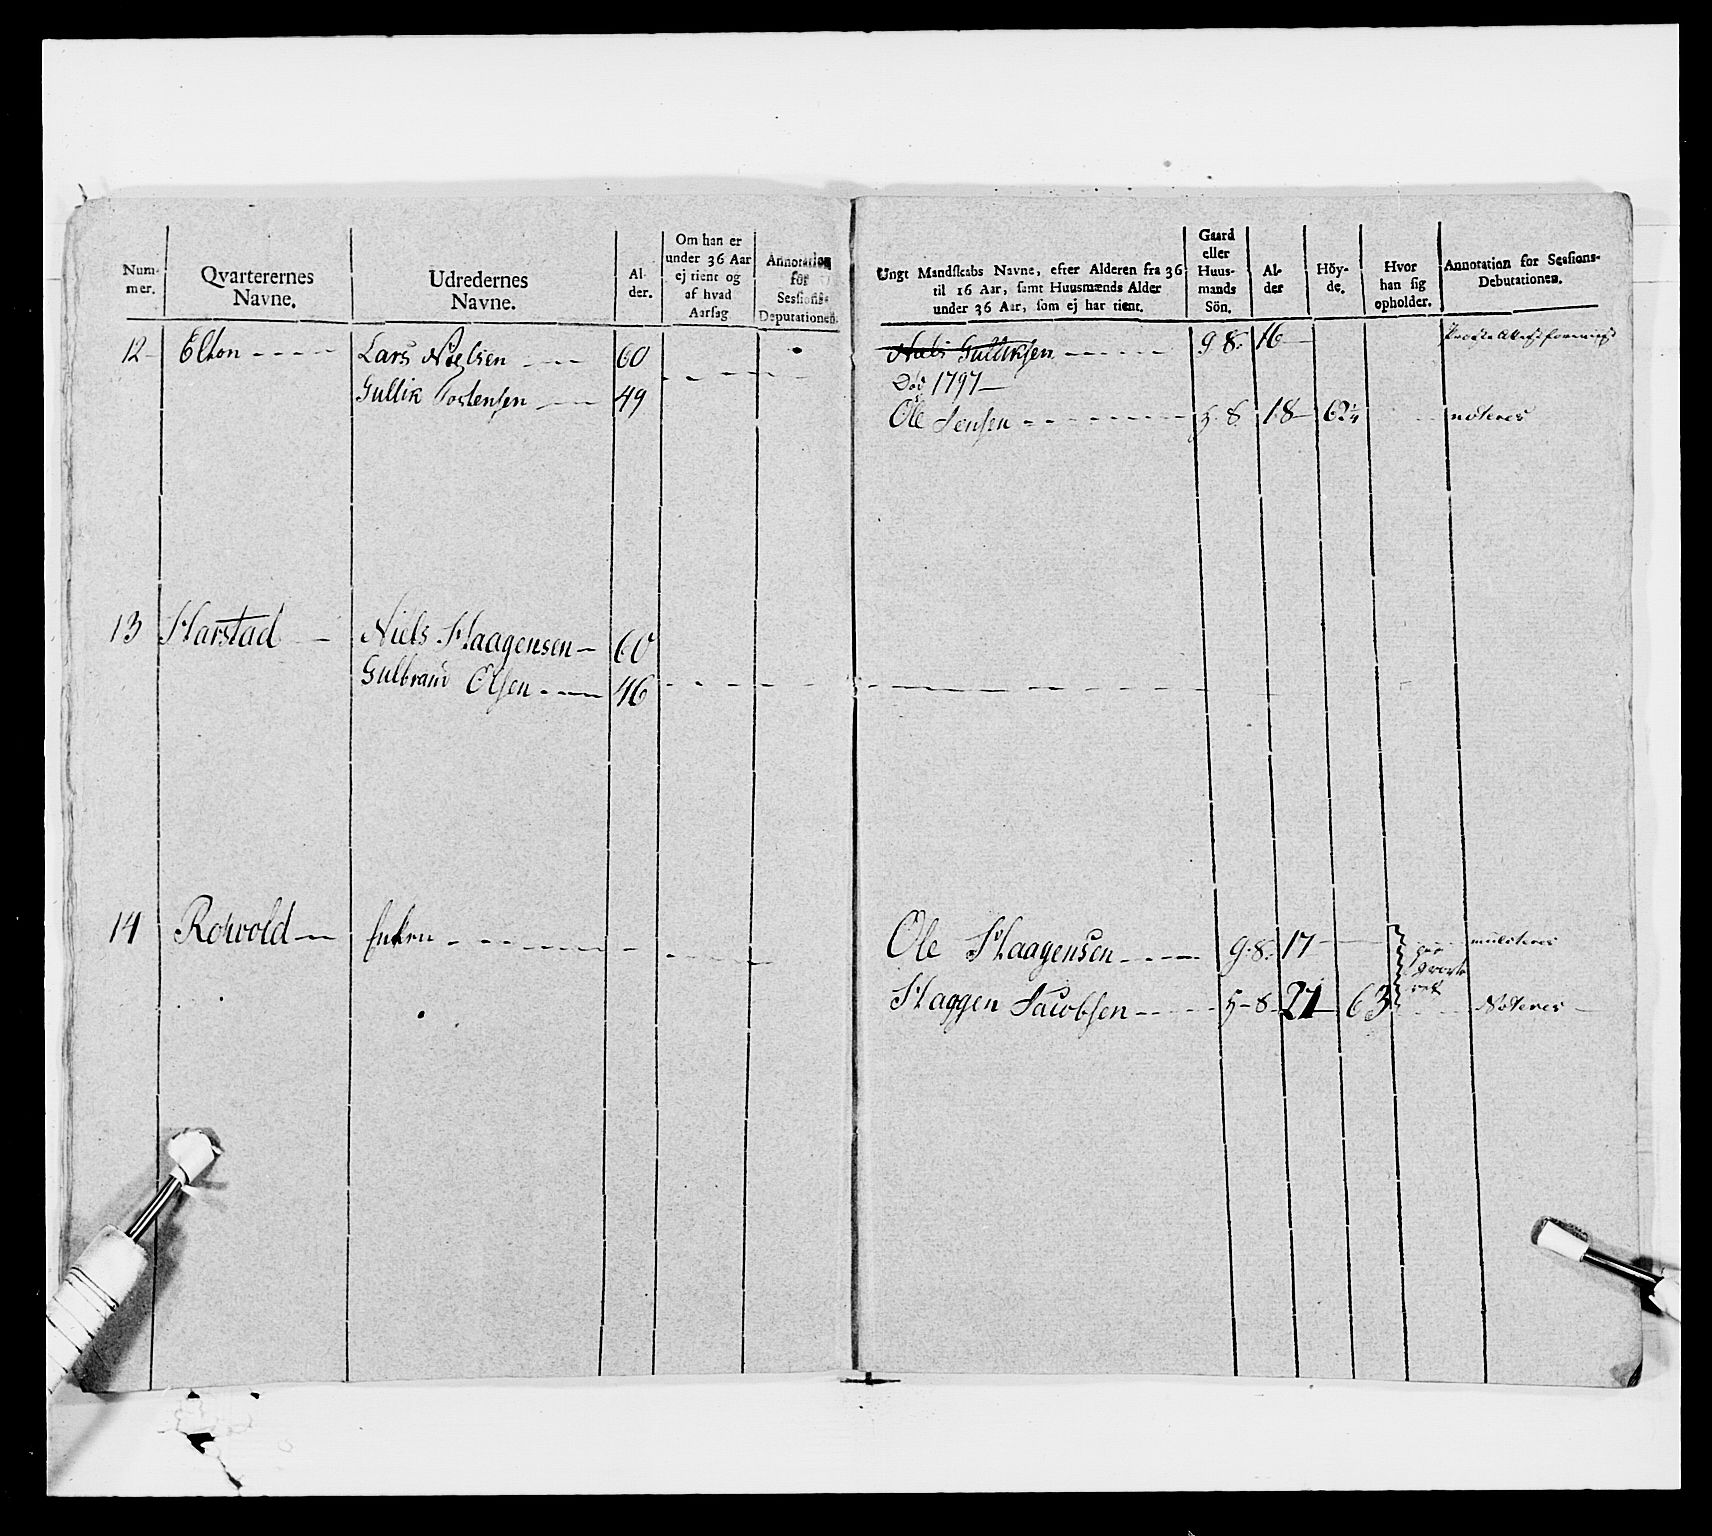 Num-
mer.
Qvarterernes
Navne.
Udredernes
Navne.
Al-
der.
Om han er
under 36 Aar
ej tient og
af hvad
Aarsag
Annotation
for
Sessions-
Deputationen.
Ungt Mandskabs Navne, efter Alderen fra 36
til 16 Aar, samt Huusmænds Alder
under 36 Aar, som ej har tient.
Gaard
eller
Huus-
mands
Sön.
Al-
der
Höy-
de.
Hvor
han sig
opholder.
Annotation for Sessions-
Debutationen.
12 Elton Lars Nielsen 60 Niels Gulliksen G. S. 16
Død 1797
Gullik Torstensen 49
Ole Jensen H. S. 18 62¼ noteres
13 Harstad Niels Haagensen 60
Gulbrand Olsen 46
14 Rotvold Enken Ole Haagensen G. S. 17
paa
qvarte
ret
Haagen Jacobsen H-S. 21 63 Noteres